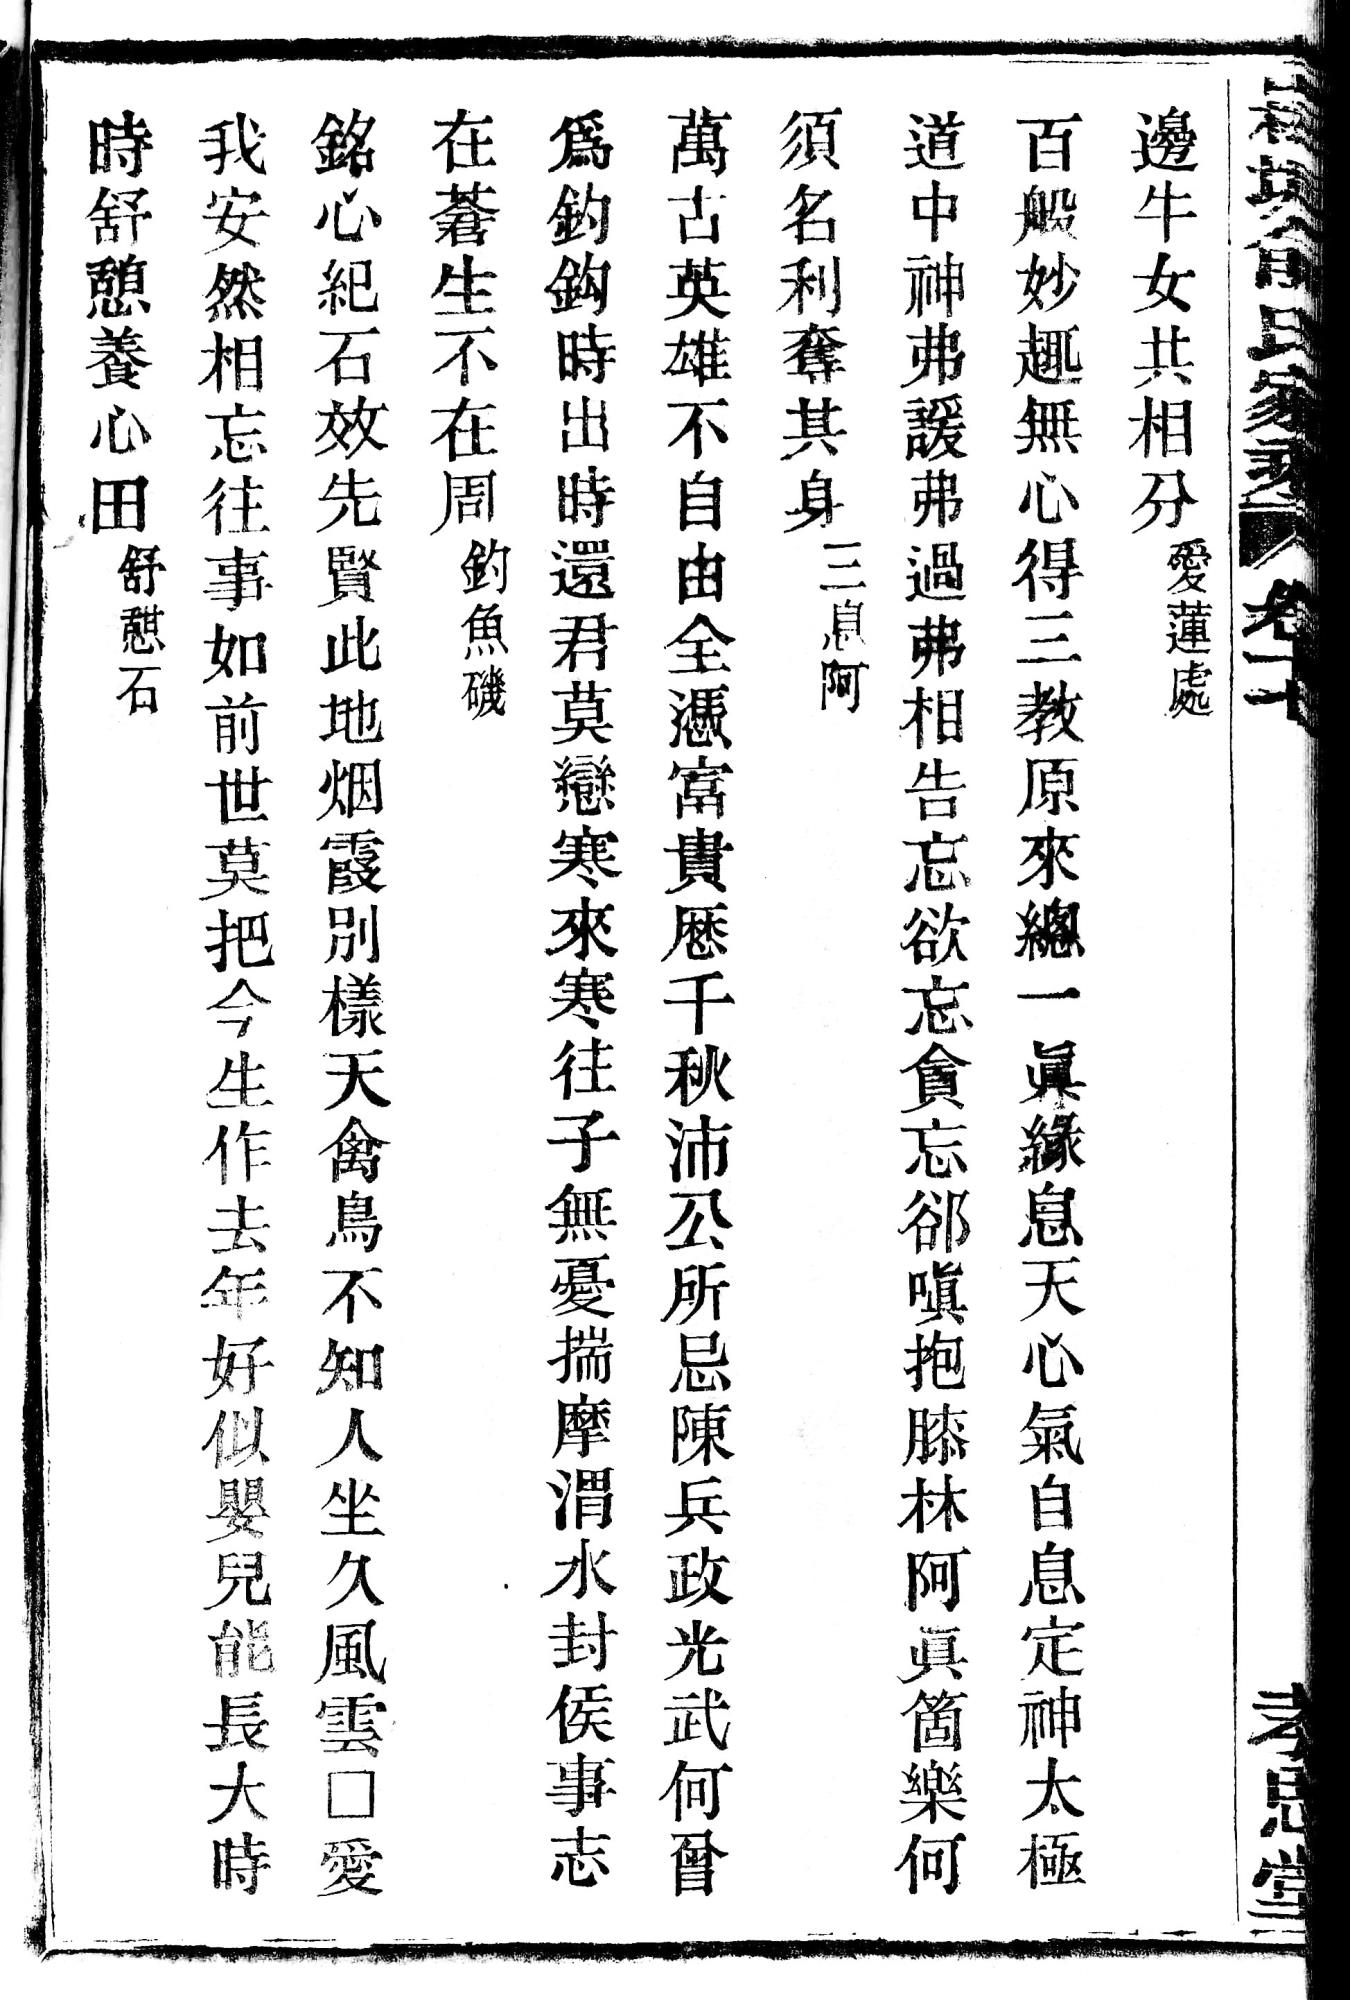 邊牛女共相分 愛蓮處
百般妙趣無心得三教原來總一眞緣息天心氣自息定神太極
道中神弗諼弗過弗相告忘欲忘貪忘郤嗔抱膝林阿眞箇樂何
須名利奪其身 三息阿
萬古英雄不自由全憑富貴厯千秋沛公所忌陳兵政光武何曾
爲釣鈎時出時還君莫戀寒來寒往子無憂揣摩渭水封侯事志
在蒼生不在周 釣魚磯
銘心紀石效先賢此地烟霞別樣天禽鳥不知人坐久風雲□愛
我安然相忘往事如前世莫把今生作去年好似嬰兒能長大時
時舒憩養心田 舒憩石
氏家乘 卷十
孝思堂